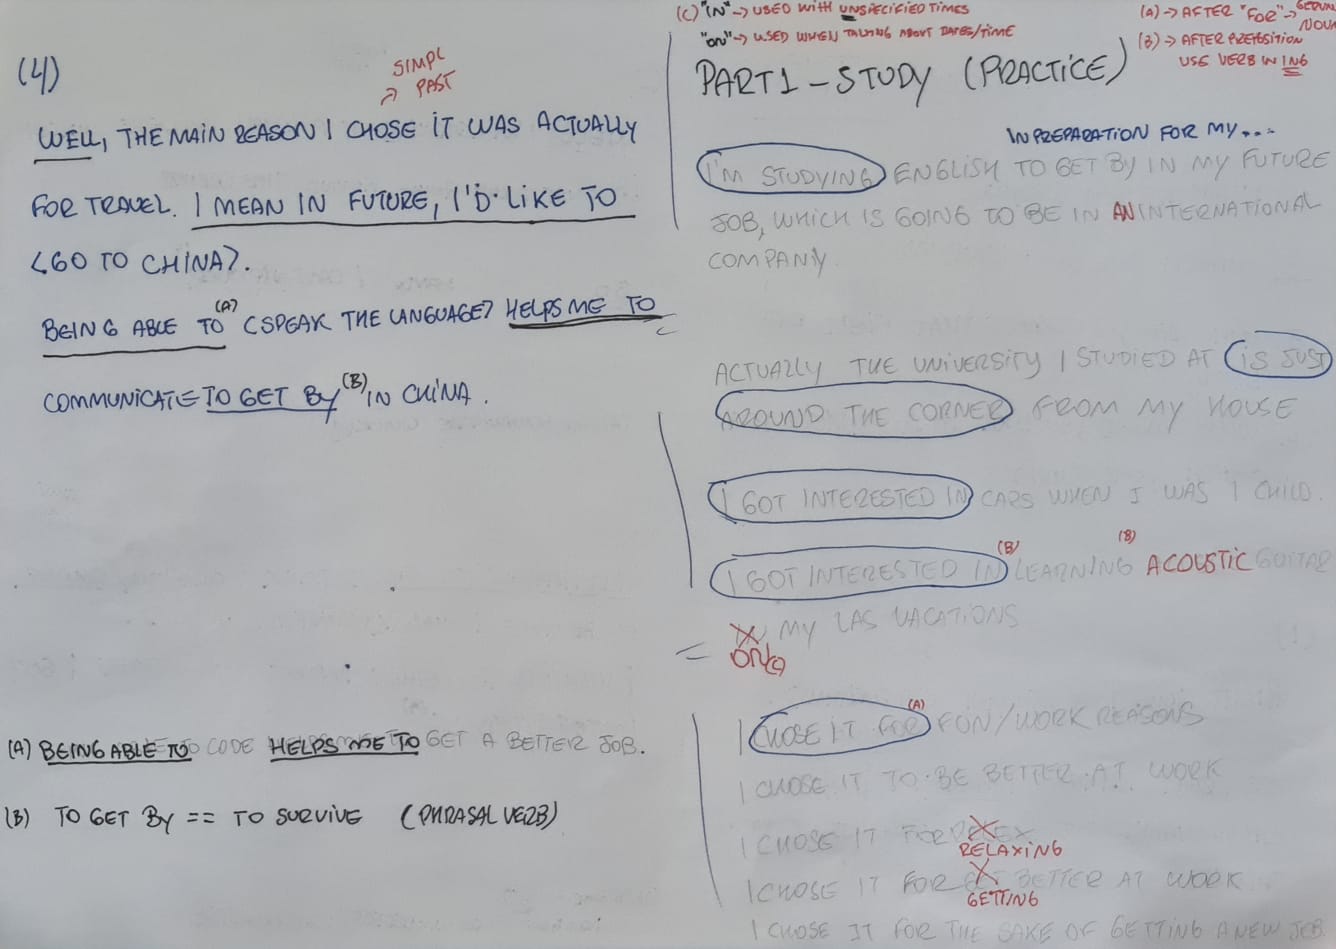 (4)
SIMPL
→ PAST
WELL, THE MAIN REASON I CHOSE IT WAS ACTUALLY
FOR TRAVEL. I MEAN IN FUTURE, I'D LIKE TO
<GO TO CHINA>.
BEING ABLE TO (A) <SPEAK THE LANGUAGE> HELPS ME TO
COMMUNICATE TO GET BY (B) IN CHINA.
(A) BEING ABLE TO CODE HELPS ME TO GET A BETTER JOB.
(B) TO GET BY == TO SURVIVE (PHRASAL VERB)
(C) "IN" → USED WITH UNSPECIFIED TIMES
"ON" → USED WHEN TALKING ABOUT DATES/TIME
(A) → AFTER "FOR" →
NOU
(B) → AFTER PREPOSITION
USE VERB IN ING
PART1 - STUDY (PRACTICE)
IN PREPARATION FOR MY...
I'M STUDYING ENGLISH TO GET BY IN MY FUTURE
JOB, WHICH IS GOING TO BE IN AN INTERNATIONAL
COMPANY
ACTUALLY THE UNIVERSITY I STUDIED AT IS JUST
AROUND THE CORNER FROM MY HOUSE
I GOT INTERESTED IN CARS WHEN I WAS 1 CHILD.
I GOT INTERESTED IN (B) LEARNING (B) ACOUSTIC GUITAR
MY LAS VACATIONS
= ON (C)
I CHOSE IT FOR (A) FUN/WORK REASONS
I CHOSE IT TO BE BETTER AT WORK
I CHOSE IT FOR
RELAXING
I CHOSE IT FOR BETTER AT WORK
GETTING
I CHOSE IT FOR THE SAKE OF GETTING A NEW JOB